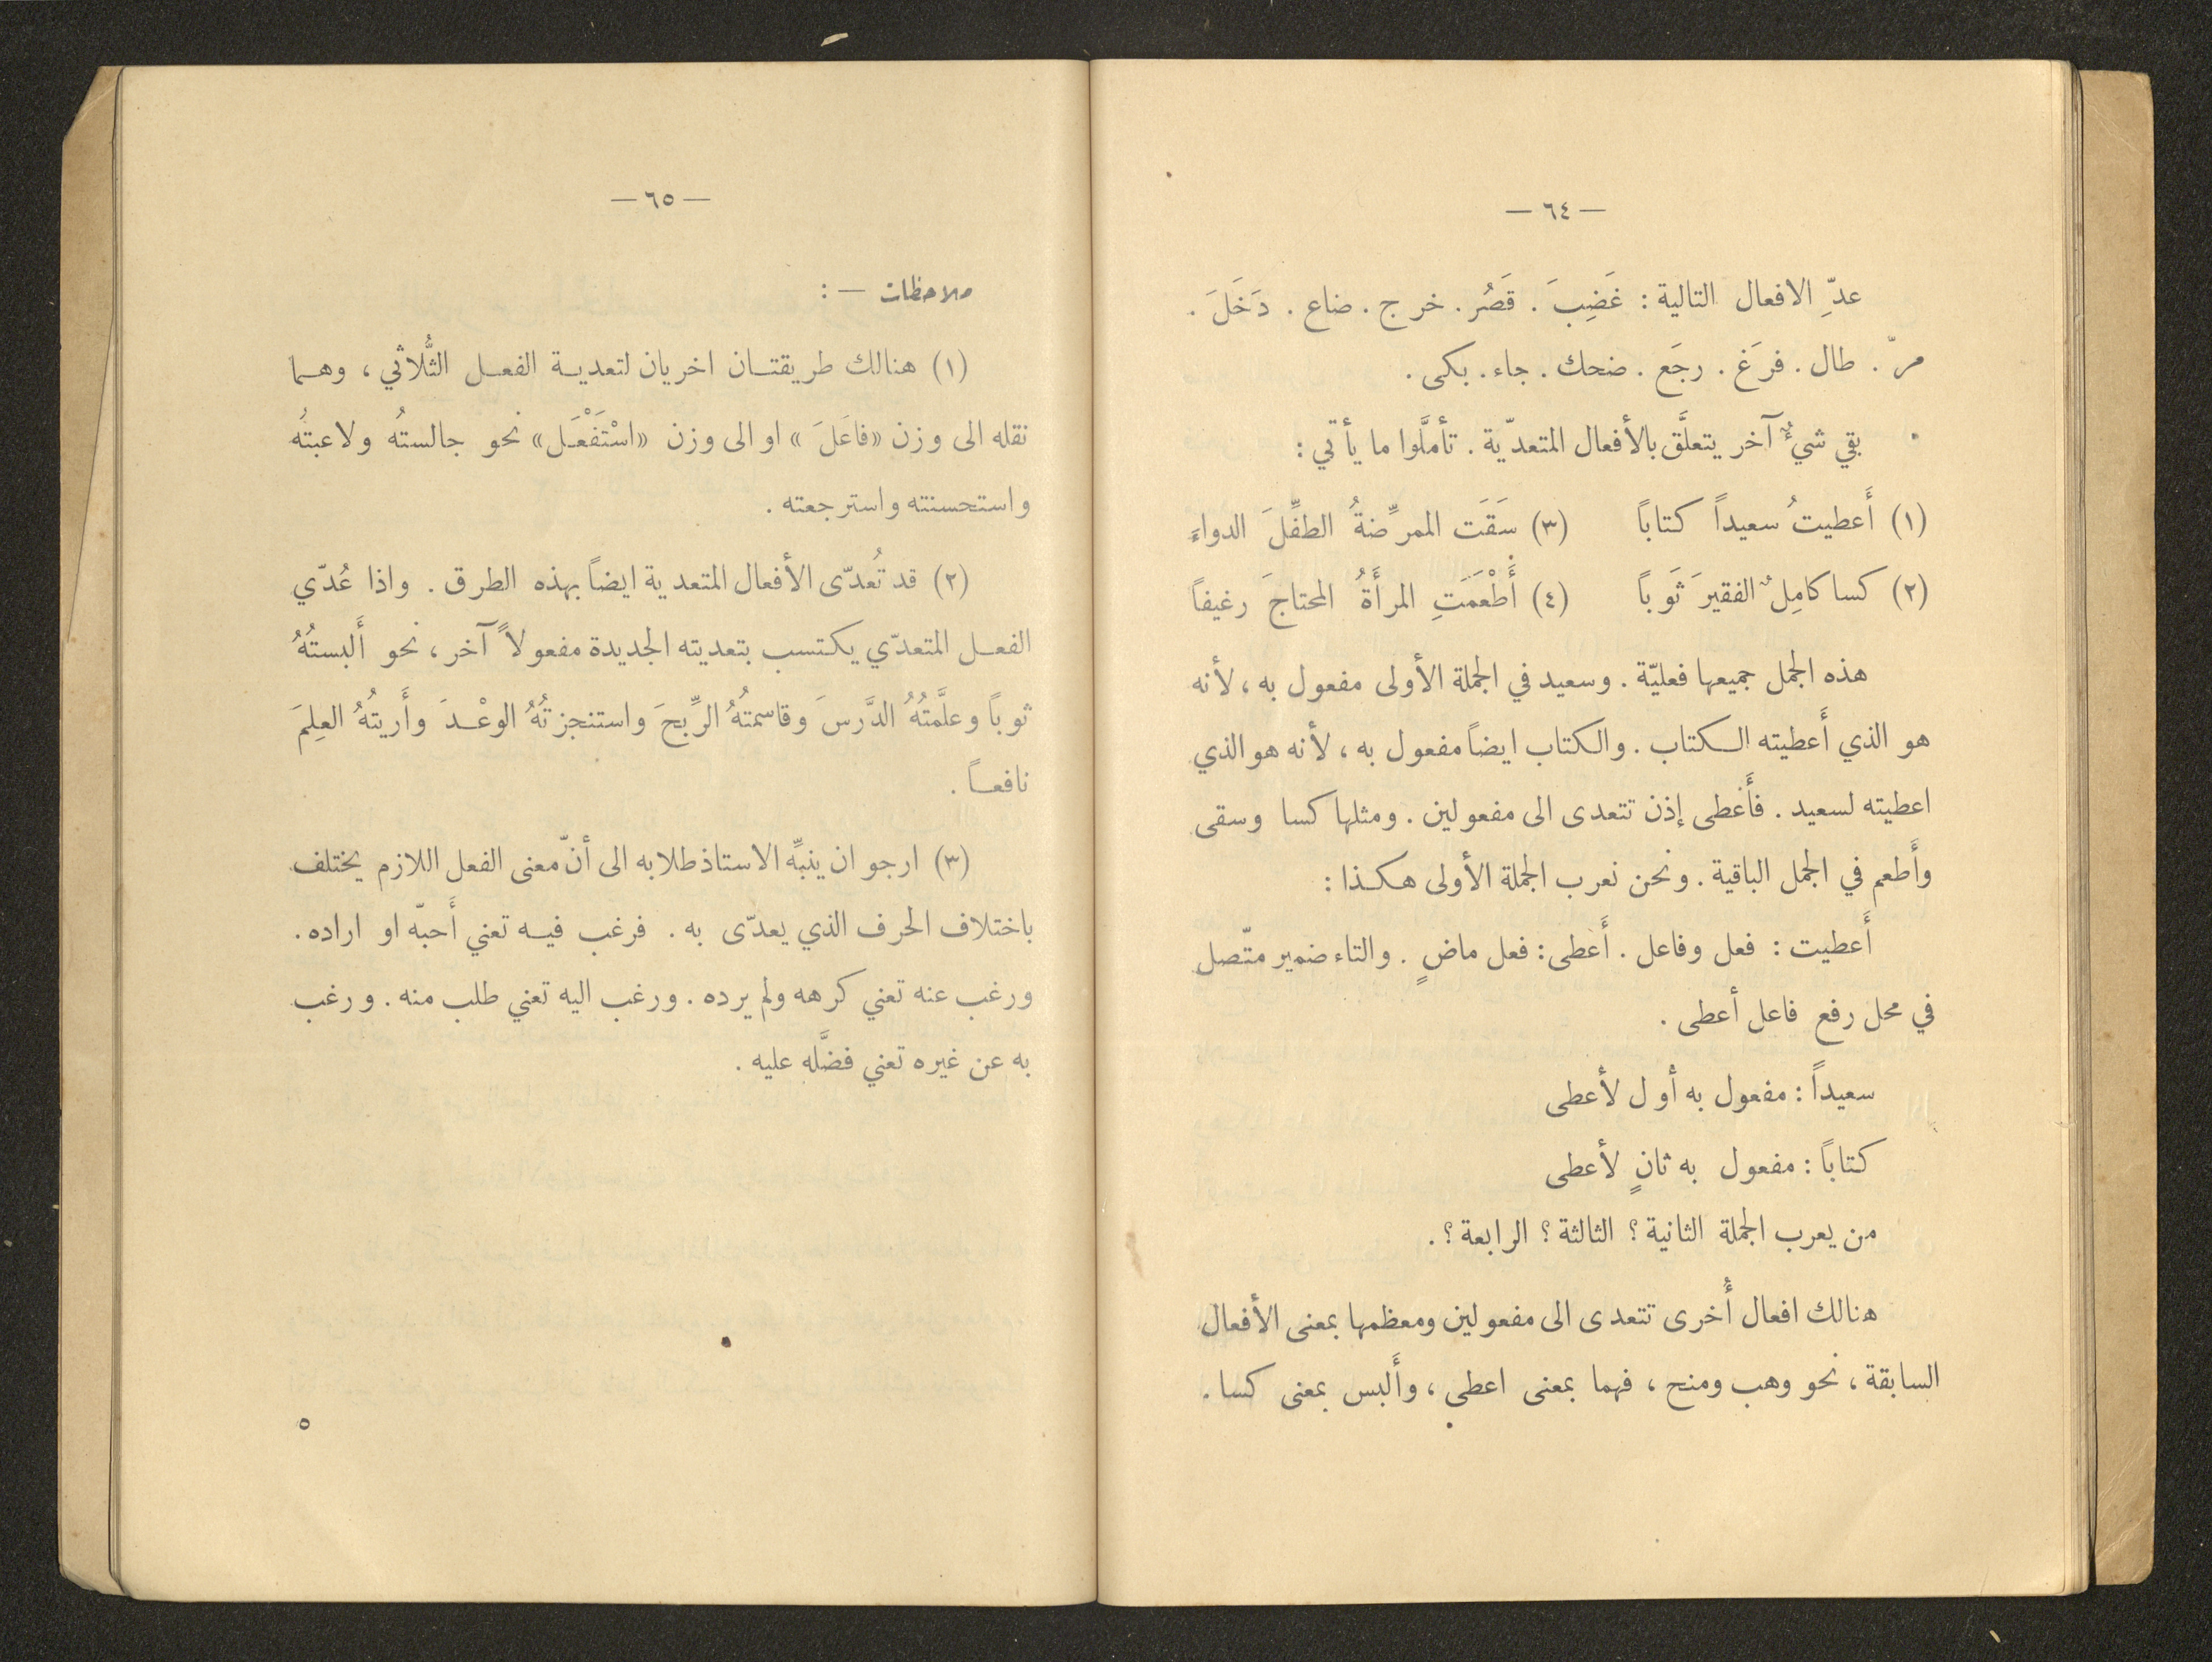 — ٦٤ —
عدِّ الافعال التالية : غَضِبَ . قَصُر . خرج . ضاع . دَخَلَ .
مرّ . طال . فرَغ . رجَع . ضحك . جاء . بكى .
بقي شيءٌ آخر يتعلَّق بالأفعال المتعدّية . تأملَّوا ما يأتي :
(١) أَعطيتُ سعيداً كتاباً (٣) سَقَت الممرِّضةُ الطفِّلَ الدواءَ
(٢) كسا كامِلٌ الفقيرَ ثَوباً (٤) أَطْعَمَتِ المرأَةُ المحتاجَ رغيفاً
هذه الجمل جميعها فعليّة . وسعيد في الجملة الأولى مفعول به ، لأنه
هو الذي أَعطيته الكتاب . والكتاب ايضاً مفعول به ، لأنه هو الذي
اعطيته لسعيد . فأَعْطى إذن تتعدى الى مفعولين . ومثلها كسا وسقى
وأَطعم في الجمل الباقية . ونحن نعرب الجملة الأولى هكذا :
أَعطيت : فعل وفاعل . أَعطى : فعل ماضٍ . والتاء ضمير متّصل
في محل رفع فاعل أعطى .
سعيداً : مفعول به أول لأعطى
كتاباً : مفعول به ثانٍ لأعطى
من يعرب الجملة الثانية ؟ الثالثة ؟ الرابعة ؟ .
هنالك افعال أُخرى تتعدى الى مفعولين ومعظمها بمعنى الأفعال
السابقة ، نحو وهب ومنح ، فهما بمعنى اعطى ، وأَلبس بمعنى كسا .
— ٦٥ —
ملاحظات — :
(١) هنالك طريقتان اخريان لتعدية الفعل الثُّلاثي ، وهما
نقله الى وزن «فاعَلَ» او الى وزن «اسْتَفْعَل» نحو جالستُه ولاعبتُه
واستحسنته واسترجعته .
(٢) قد تُعدّى الأفعال المتعدية ايضاً بهذه الطرق . واذا عُدّي
الفعل المتعدّي يكتسب بتعديته الجديدة مفعولاً آخر ، نحو أَلبستُهُ
ثوباً وعلَّمتُهُ الدَّرسَ وقاسمتهُ الرِّبحَ واستنجزتُهُ الوعْدَ وأَريتُهُ العِلمَ
نافعاً .
(٣) ارجو ان ينبِّه الاستاذ طلابه الى أنّ معنى الفعل اللازم يختلف
باختلاف الحرف الذي يعدّى به . فرغب فيه تعني أَحبّه او اراده .
ورغب عنه تعني كرهه ولم يرده . ورغب اليه تعني طلب منه . ورغب
به عن غيره تعني فضَّله عليه .
٥